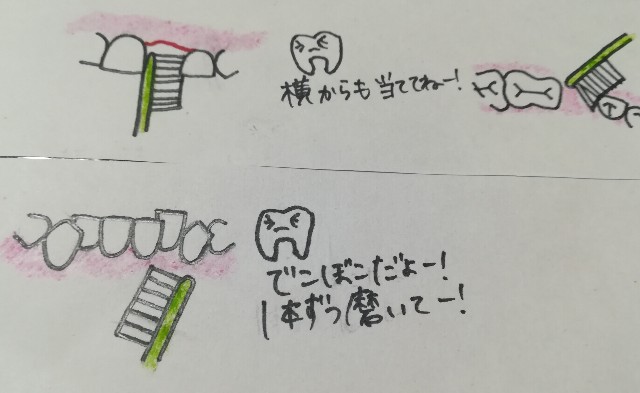 横からも当ててねー!
でこぼこだよー!
1本ずつ磨いてー!